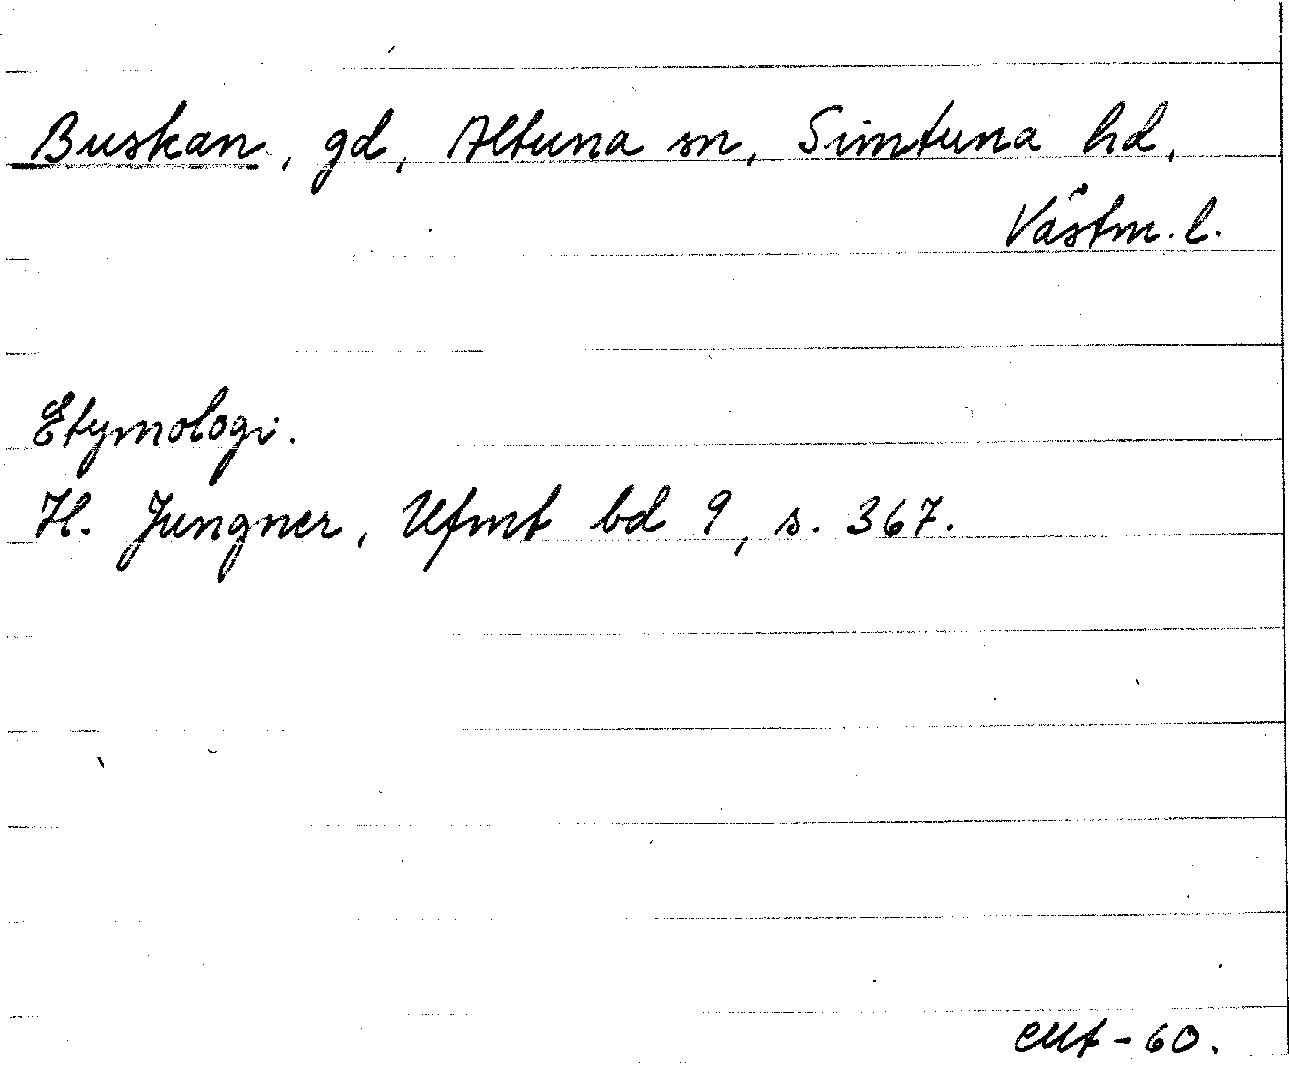 Buskan, gd, Altuna sn, Simtuna hd,
Västm. l.
Etymologi.
H. Jungner, Ufmt bd 9, s. 367.
-60.